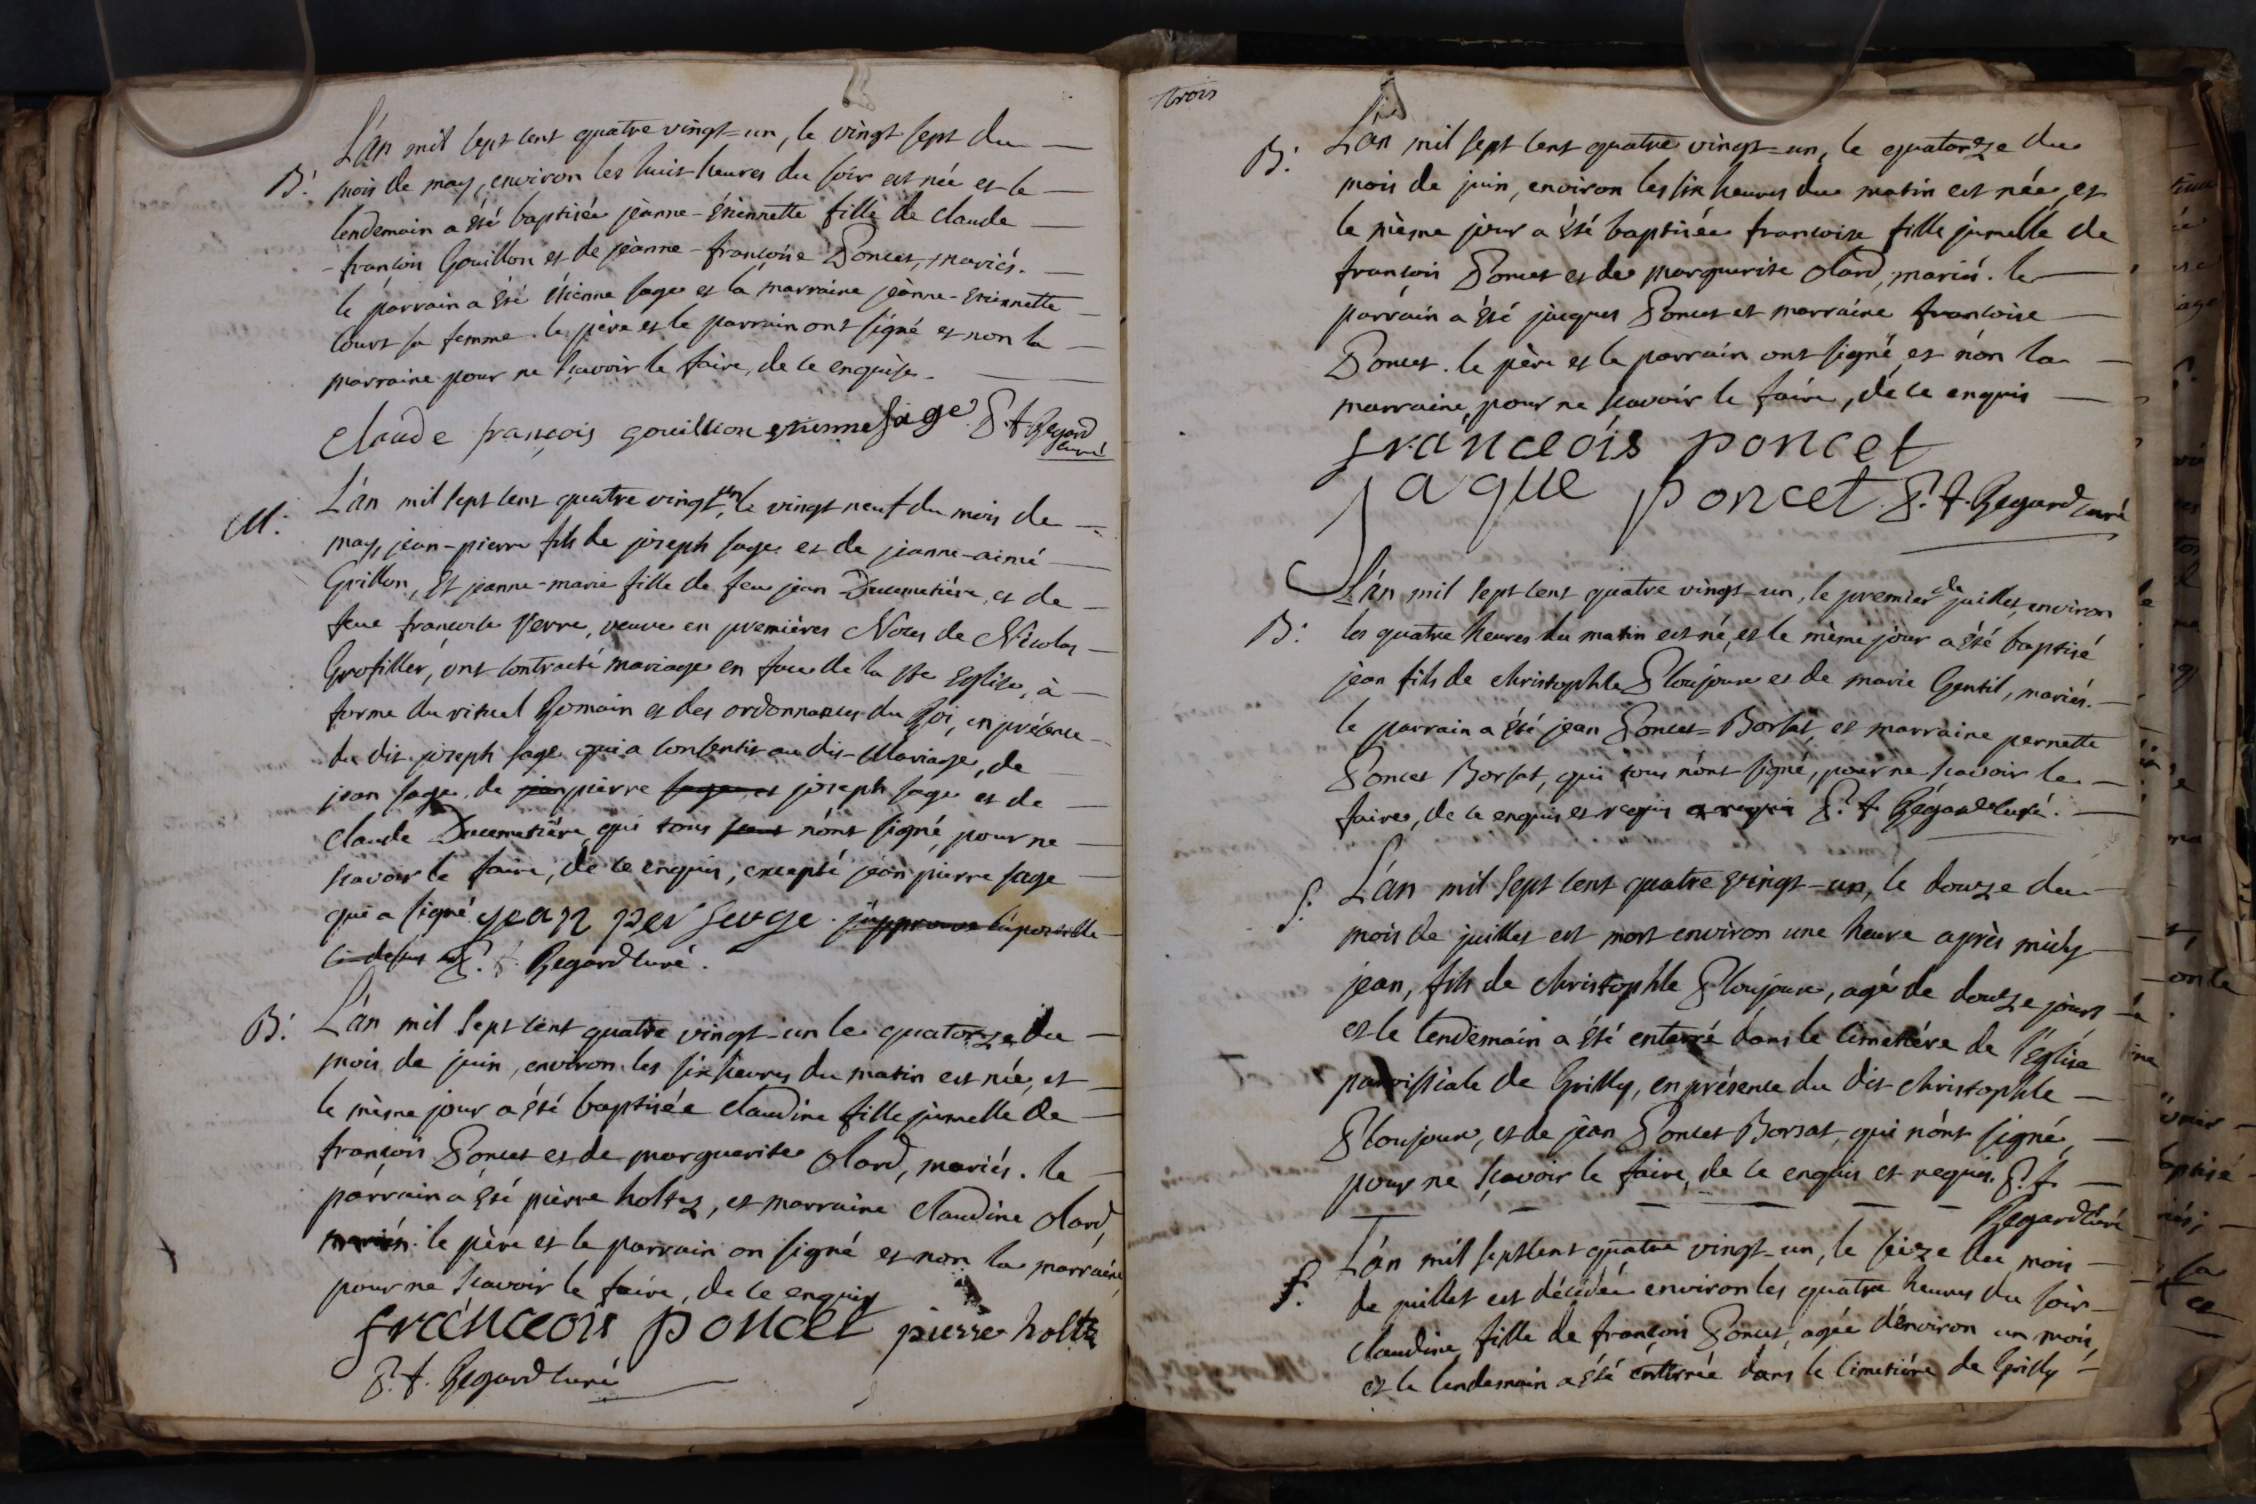 L'an mil sept cent quatre vingt=un, le vingt sept du
B. mois de may, environ les huit heures du soir est née et le
lendemain a été baptisée jeanne-étiennette fille de claude
-françois Gouillon et de jeanne-françoise Poncet, mariés.
le parrain a été étienne sage et la marraine jeanne-étiennette
sa femme. le père et le parrain ont signé et non la
marraine pour ne sçavoir le faire, de ce enquise.
claude françois gouillion etienne sage P. f. Regard
curé
M. L'an mil sept cent quatre vingt un, le vingt neuf du mois de
may, jean-pierre fils de joseph sage et de jeanne-aimé
Grillon, Et jeanne-marie fille de feu jean Ducimetière, et de
feue françoise Verre, veuve en premières Noces de Nicolas
Grofiller, ont contracté mariage en face de la ste Eglise, à
forme du rituel Romain et des ordonnances du Roi, en présence
du dit joseph sage qui a consentit au dit-Mariage, de
jean sage, de jean pierre sage et joseph sage et de
claude Ducimetière, qui tous n'ont signé, pour ne
scavoir le faire, de ce enquis, excepté jean pierre sage
qui a signé jean per sage. j'approuve l'apostille
ci-dessus P. f. Regard curé.
B. L'an mil sept cent quatre vingt-un le quatorze du
mois de juin, environ les six heures du matin est née, et
le même jour a été baptisée claudine fille jumelle de
françois Poncet et de marguerite olard, mariés. le
parrain a été pierre holtz, et marraine claudine olard,
mariés. le père et le parrain on signé et non la marraine,
pour ne scavoir le faire, de ce enquis
franceois poncet pierre holtz
P. f. Regard curé
trois
L'an mil sept cent quatre vingt=un, le quatorze du
B. mois de juin, environ les six heures du matin est née, et
le même jour a été baptisée françoise fille jumelle de
françois Poncet et de marguerite olard, mariés. le
parrain a été jacques Poncet et marraine françoise
Poncet. le père et le parrain ont signé, et non la
marraine, pour ne scavoir le faire, de ce enquis
franceois poncet
jaque poncet. P. f. Regard curé
L'an mil sept cent quatre vingt-un, le premier de juillet, environ
B. les quatre heures du matin est né, et le même jour a été baptisé
jean fils de christophle Ploujoux et de marie Gentil, mariés.
le parrain a été jean Poncet=Borsat, et marraine pernette
Poncet Borsat, qui tous n'ont signé, pour ne scavoir le
faire, de ce enquis et requis et requis P. f. Regard curé.
S. L'an mil sept cent quatre vingt-un, le douze du
mois de juillet est mort environ une heure après midy
jean, fils de christophle Ploujoux, agé de douze jours
et le lendemain a été enterré dans le cimetière de l'Eglise
paroissiale de Grilly, en présence du dit christophle
Ploujoux, et de jean Poncet Borsat, qui n'ont signé,
pour ne scavoir le faire, de ce enquis et requis. P. f.
Regard curé
S. L'an mil sept cent quatre vingt-un, le seize du mois
de juillet est décédée environ les quatre heures du soir
claudine fille de françois Poncet, agée d'environ un mois,
et le lendemain a été enterrée dans le cimetière de Grilly